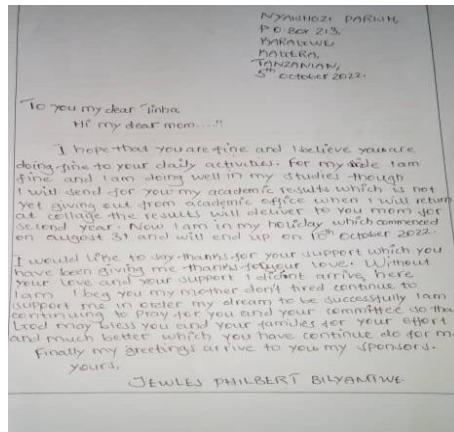 NYAWHOZI PARISH,
P O BOX 213,
KARAGWE,
KAGERA,
TANZANIAN,
5th october 2022.
To you my dear Tinha
Hi my dear mom...."
I hope that you are fine and I believe you are
doing fine to your daily activities. For my side I am
fine and I am doing well in my studies though
I will send for you my academic results which is not
yet giving out from academic office when I will return
at collage the results will deliver to you mom for
second year. Now I am in my holiday which commenced
on august 31 and will end up on 10th october 2022.
I would like to say thanks for your support which you
have been giving me thanks for your love. Without
your love and your support I didn't arrive here
I am I beg you my mother don't tired continue to
support me in order my dream to be successfully I am
continuing to pray for you and your committee so that
God may bless you and your families for your effort
and much better which you have continue do for me
Finally my greetings arrive to you my sponsors.
yours,
JEWLES PHILBERT BILYAMTWE.